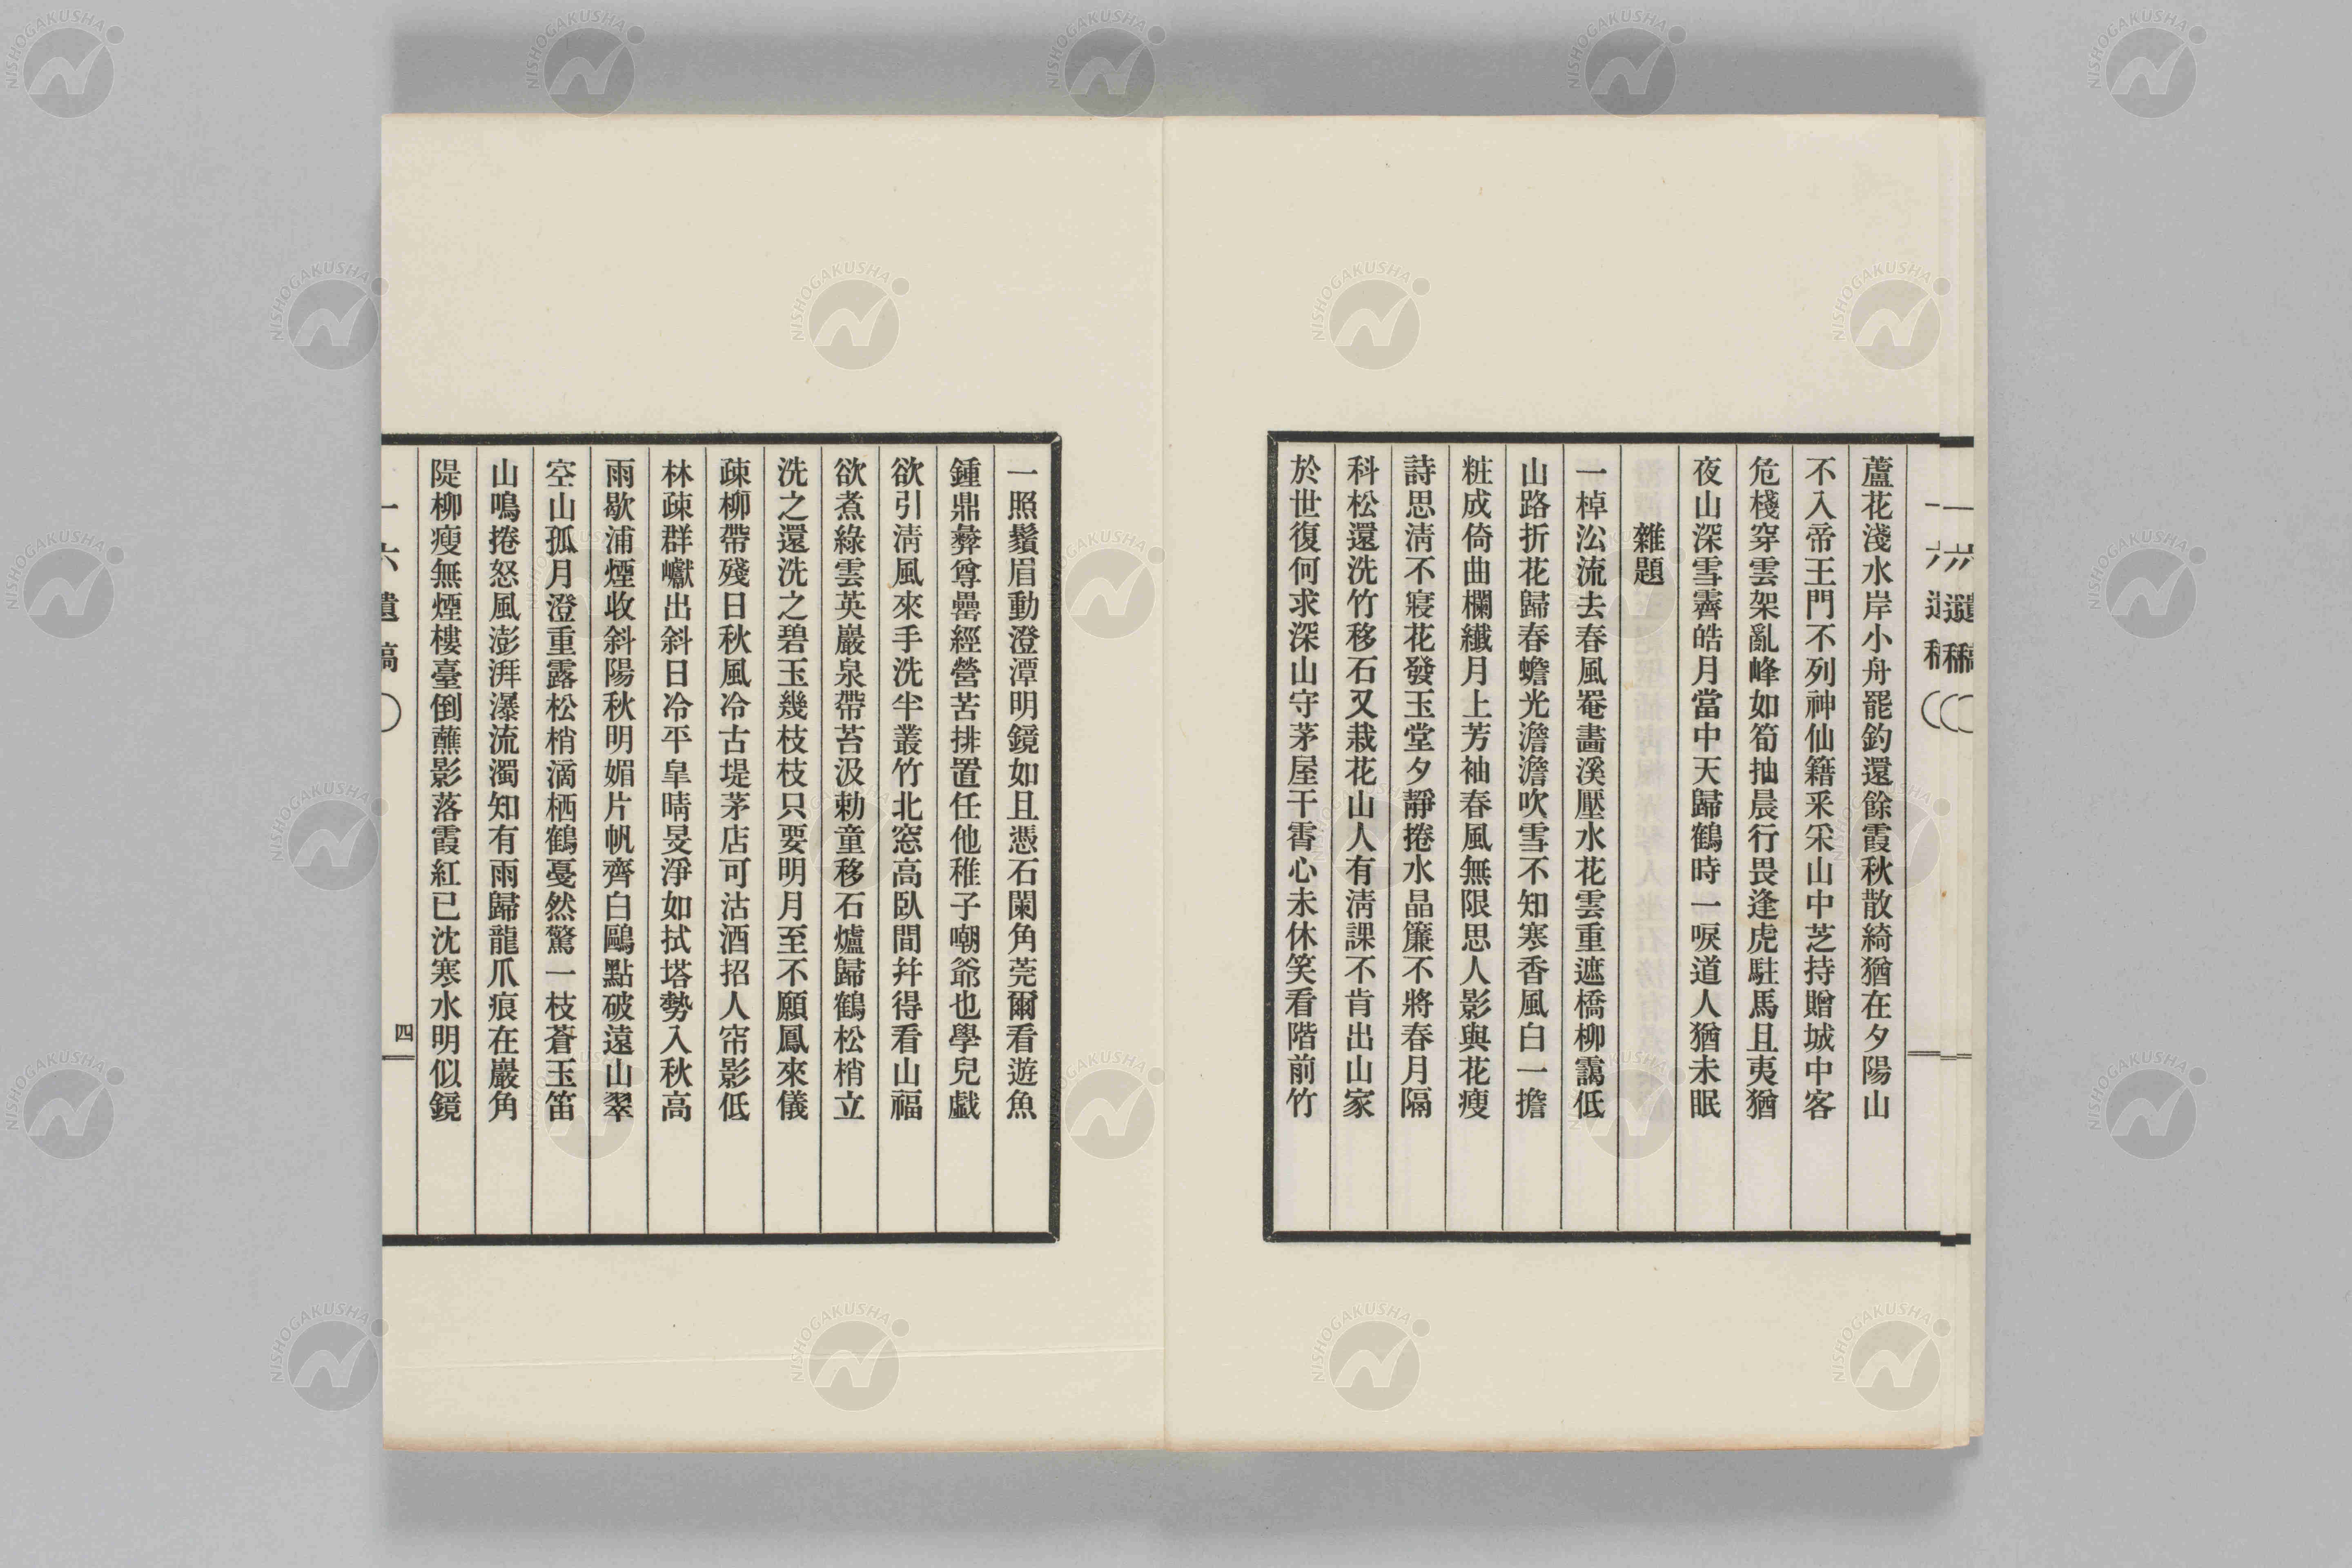 一六遺稿
蘆花淺水岸小舟罷釣還餘霞秋散綺猶在夕陽山
不入帝王門不列神仙籍釆釆山中芝持贈城中客
危棧穿雲架亂峰如筍抽晨行畏逢虎駐馬且夷猶
夜山深雪霽皓月當中天歸鶴時一唳道人猶未眠
雜題
一棹訟流去春風罨畵溪壓水花雲重遮橋柳靄低
山路折花歸春蟾光澹澹吹雪不知寒香風白一擔
粧成倚曲欄纖月上芳袖春風無限思人影與花瘦
詩思淸不寢花發玉堂夕靜捲水晶簾不將春月隔
科松還洗竹移石又栽花山人有淸課不肯出山家
於世復何求深山守茅屋干霄心未休笑看階前竹
一照鬚眉動澄潭明鏡如且憑石闌角莞爾看遊魚
鍾鼎彝尊罍經營苦排置任他稚子嘲爺也學兒戲
欲引淸風來手洗半叢竹北窓高臥間幷得看山福
欲煮綠雲英巖泉帶苔汲勅童移石爐歸鶴松梢立
洗之還洗之碧玉幾枝枝只要明月至不願鳳來儀
疎柳帶殘日秋風冷古堤茅店可沽酒招人帘影低
林疎群巘出斜日冷平皐晴旻淨如拭塔勢入秋高
雨歇浦煙收斜陽秋明媚片帆齊白鷗點破遠山翠
空山孤月澄重露松梢滴栖鶴戞然驚一枝蒼玉笛
山鳴捲怒風澎湃瀑流濁知有雨歸龍爪痕在巖角
隄柳瘦無煙樓臺倒蘸影落霞紅已沈寒水明似鏡
一六遺稿
四
NISHOGAKUSHA